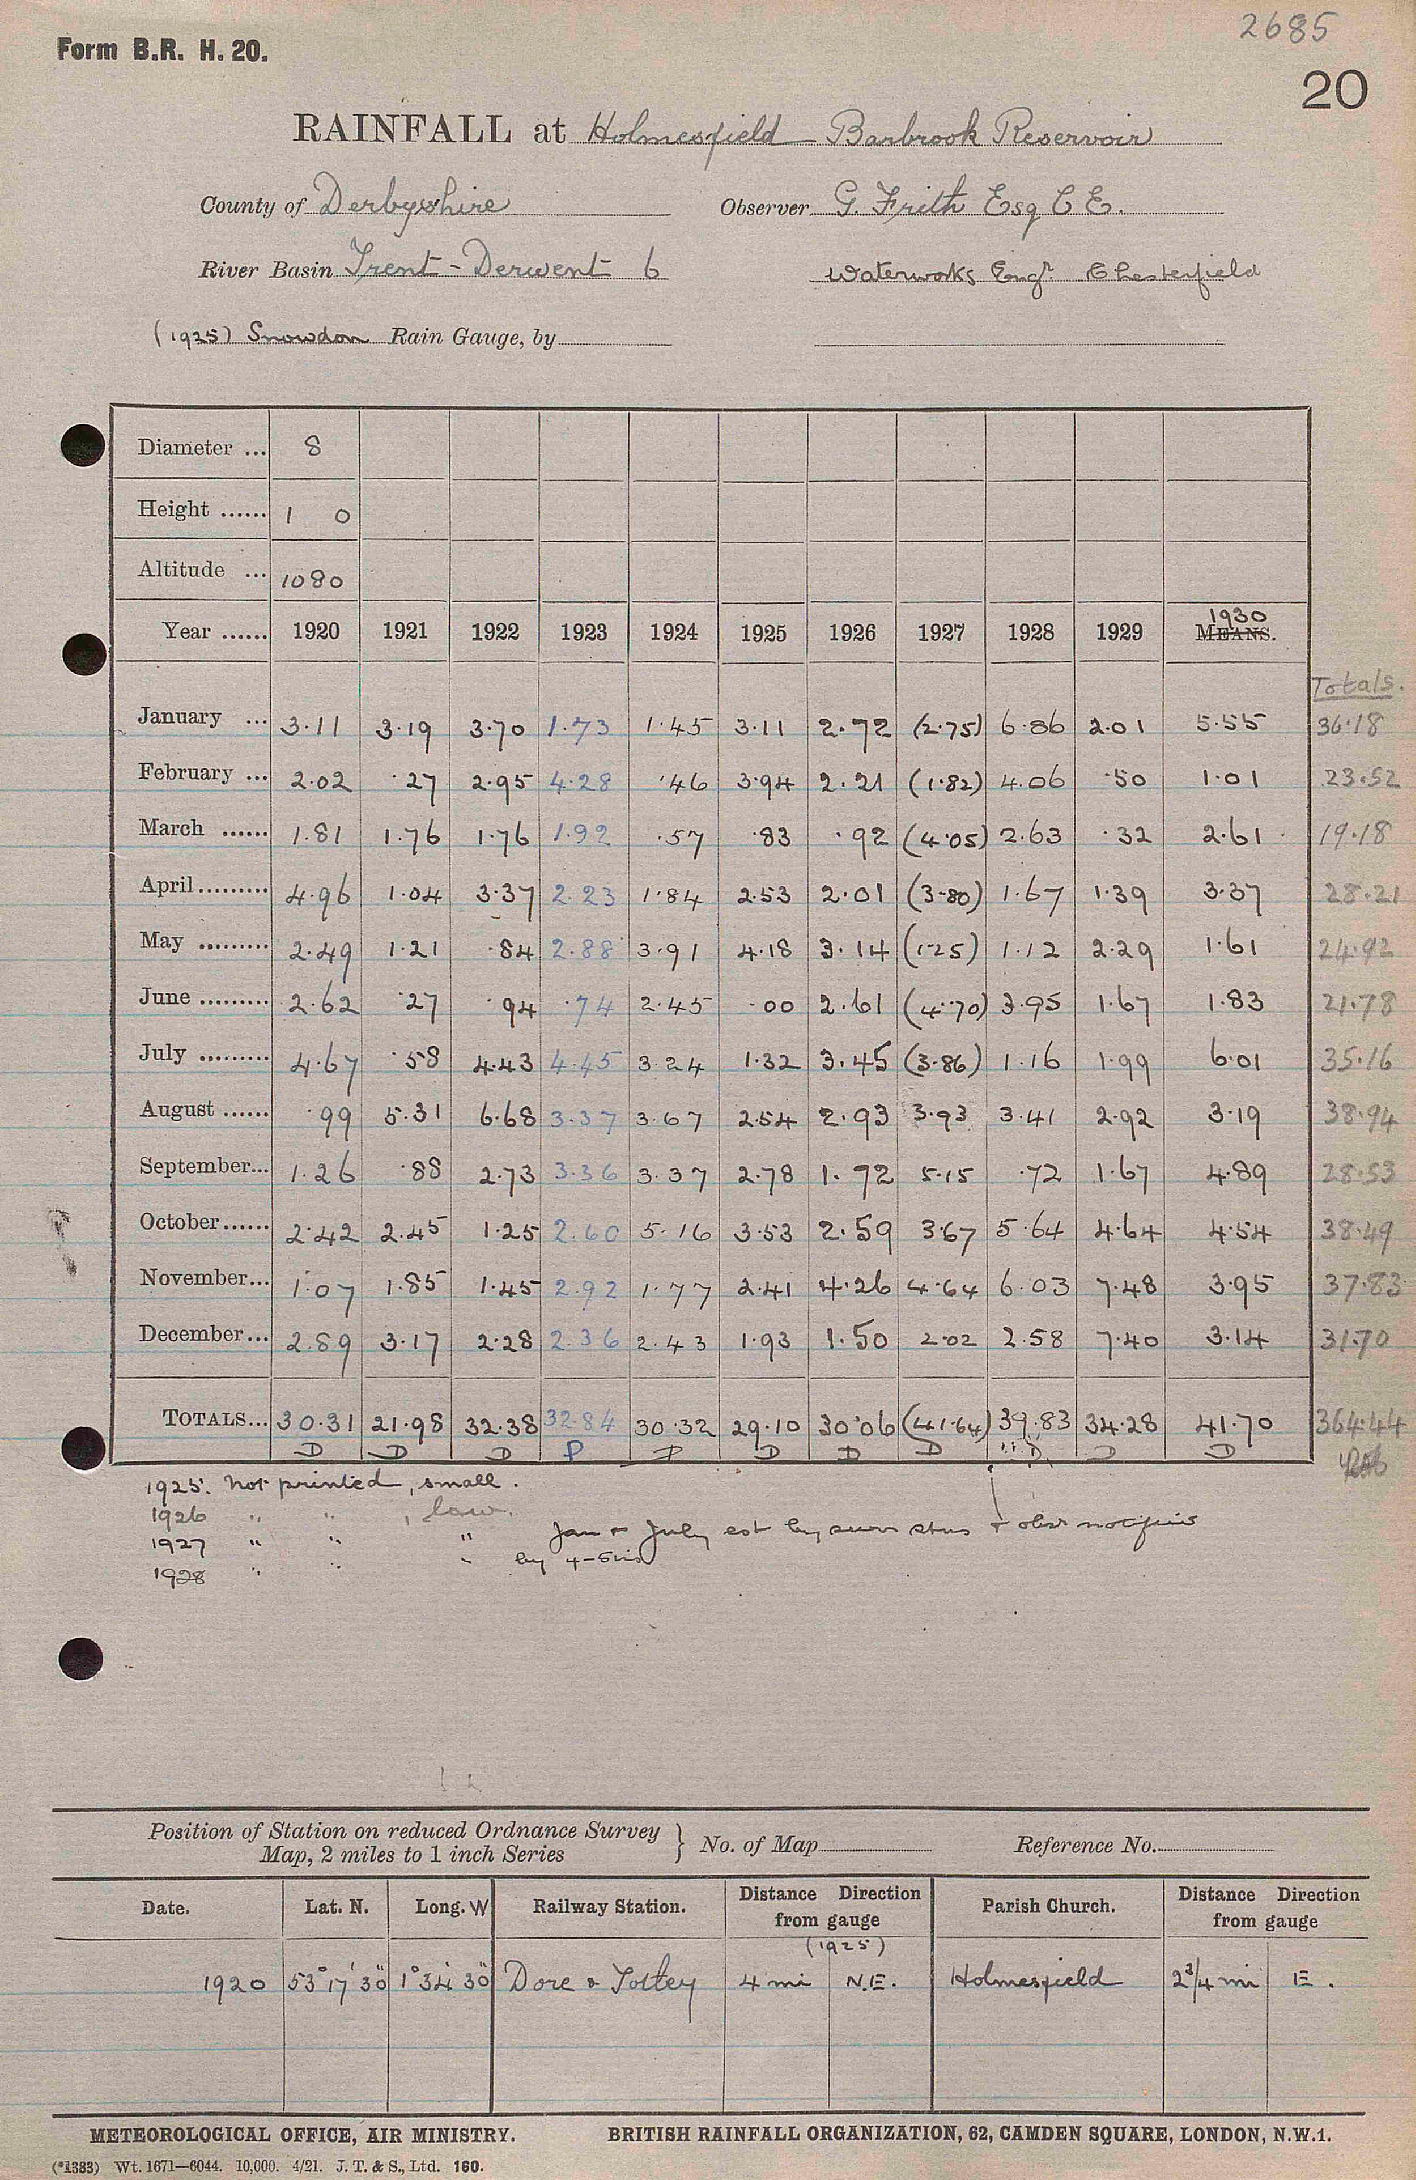 2685
Form B.R. H. 20.
20
RAINFALL at Holmesfield – Barbrook Reservoir
County of Derbyshire Observer G. Frith Esq C E.
River Basin Trent - Derwent 6 Waterworks Engr Chesterfield
(1925) Snowdon Rain Gauge, by
Diameter ... 8
Height ...... 1 0
Altitude ... 1080
1930
Year ...... 1920 1921 1922 1923 1924 1925 1926 1927 1928 1929 MEANS.
Totals.
January ... 3.11 3.19 3.70 1.73 1.45 3.11 2.72 (2.75) 6.86 2.01 5.55 36.18
February ... 2.02 .27 2.95 4.28 .46 3.94 2.21 (1.82) 4.06 .50 1.01 23.52
March ...... 1.81 1.76 1.76 1.92 .57 .83 .92 (4.05) 2.63 .32 2.61 19.18
April ......... 4.96 1.04 3.37 2.23 1.84 2.53 2.01 (3.80) 1.67 1.39 3.37 28.21
May ......... 2.49 1.21 .84 2.88 3.91 4.18 3.14 (1.25) 1.12 2.29 1.61 24.92
June ......... 2.62 .27 .94 .74 2.45 .00 2.61 (4.70) 3.95 1.67 1.83 21.78
July ......... 4.67 .58 4.43 4.45 3.24 1.32 3.45 (3.86) 1.16 1.99 6.01 35.16
August ...... .99 5.31 6.68 3.37 3.67 2.54 2.93 3.93 3.41 2.92 3.19 38.94
September... 1.26 .88 2.73 3.36 3.37 2.78 1.72 5.15 .72 1.67 4.89 28.53
October...... 2.42 2.45 1.25 2.60 5.16 3.53 2.59 3.67 5.64 4.64 4.54 38.49
November... 1.07 1.85 1.45 2.92 1.77 2.41 4.26 4.64 6.03 7.48 3.95 37.83
December... 2.89 3.17 2.28 2.36 2.43 1.93 1.50 2.02 2.58 7.40 3.14 31.70
TOTALS... 30.31 21.98 32.38 32.84 30.32 29.10 30.06 (41.64) 39.83 34.28 41.70 364.44
D D D P P D D D D D D
1925. not printed, small.
1926 " " , low.
1927 " " " Jan + July est by surr stns + obsr notifies
1928 " " " by 4-5 ins
Position of Station on reduced Ordnance Survey
Map, 2 miles to 1 inch Series } No. of Map Reference No.
Date. Lat. N. Long. W Railway Station. Distance Direction from gauge Parish Church. Distance Direction from gauge
(1925)
1920 53° 17' 30" 1° 34' 30" Dore & Totley 4 mi N.E. Holmesfield 2 3/4 mi E.
METEOROLOGICAL OFFICE, AIR MINISTRY. BRITISH RAINFALL ORGANIZATION, 62, CAMDEN SQUARE, LONDON, N.W.1.
(*1383) Wt. 1671—6044. 10,000. 4/21. J. T. & S., Ltd. 160.